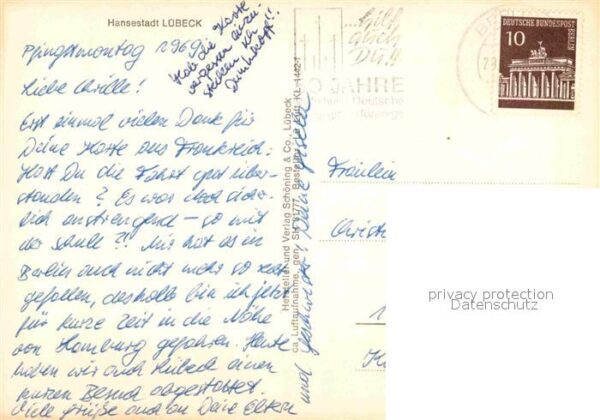 Hansestadt LÜBECK
Pfingstmontag 1969
Liebe Chrille!
Erst einmal vielen Dank für
Deine Karte aus Frankreich.
Hast Du die Fahrt gut über-
standen? Es war doch sicher-
lich anstrengend – so mit
der Schule?! Mir hat es in
Berlin auch nicht mehr so
gefallen, deshalb bin ich jetzt
für kurze Zeit in die Nähe
von Hamburg gefahren. Heute
haben wir auch Lübeck einen
kurzen Besuch abgestattet.
Viele Grüße auch an Deine Eltern
und Geschwister! Deine
Hab die Karte
vergessen
Dummkopf!!
Hersteller und Verlag Schöning & Co., Lübeck
Luftaufnahme, gen. SH
Bestell
KL 1442
...hilf
auch
Du!!
JAHRE
Deutsche
fürsorge
DEUTSCHE BUNDESPOST
BERLIN
10
Fräulein
Christ
privacy protection
Datenschutz